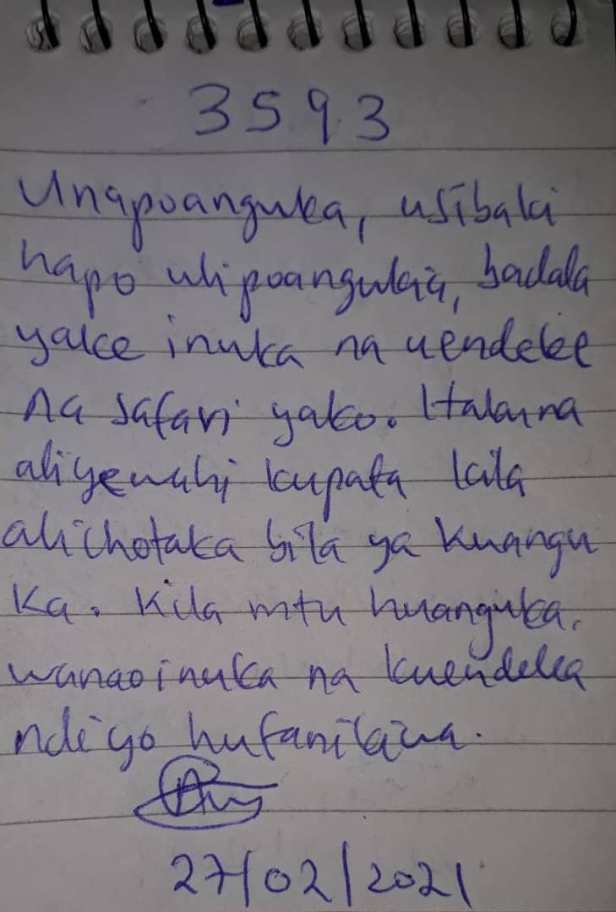 3593
Unapoanguka, usibaki
hapo ulipoangukia, badala
yake inuka na uendelee
na safari yako. Hakuna
aliyewahi kupata kila
alichotaka bila ya kuangu
ka. Kila mtu huanguka,
wanaoinuka na kuendelea
ndiyo hufanikiwa.
27/02/2021